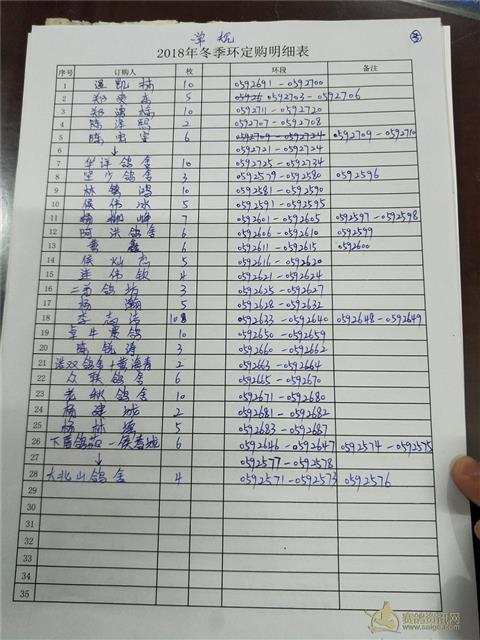 2018年冬季环定购明细表
序号 订购人 枚 环段 备注
1 温凯林 10 0592691-0592700
2 5 0592703-0592706
3 10 0592711-0592720
4 2 0592707-0592708
5 6 0592709-0592724 0592709-0592710
6 ↓ 0592721-0592724
7 华详鸽舍 10 0592725-0592734
8 坚少鸽舍 3 0592579-0592580 0592596
9 10 0592581-0592590
10 侯伟冰 5 0592591-0592595
11 7 0592601-0592605 0592597-0592598
12 阿洪鸽舍 6 0592606-0592610 0592599
13 黄鑫 6 0592611-0592615 0592600
14 侯灿杰 5 0592616-0592620
15 连伟钦 4 0592621-0592624
16 二苗鸽坊 3 0592625-0592627
17 杨瀚 5 0592628-0592632
18 李志浩 0592633-0592640 0592648-0592649
19 10 0592650-0592659
20 陈锐涛 3 0592660-0592662
21 洪双鸽舍+黄海青 2 0592663-0592664
22 众联鸽舍 6 0592665-0592670
23 老秋鸽舍 10 0592671-0592680
24 杨建城 2 0592681-0592682
25 5 0592683-0592687
26 6 0592646-0592647 0592574-0592575
27 ↓ 0592577-0592578
28 大北山鸽舍 4 0592571-0592573 0592576
29
30
31
32
33
34
35
赛鸽资讯网